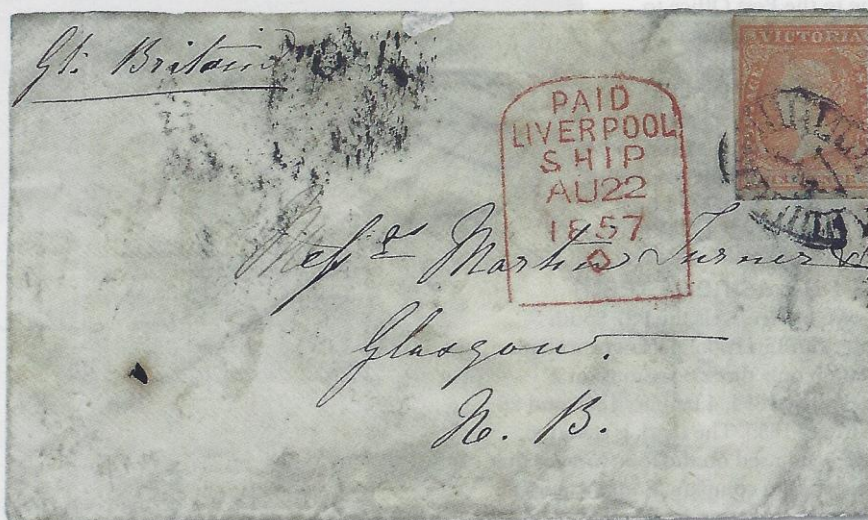 Gt. Britain
VICTORIA
PAID
LIVERPOOL
SHIP
AU22
1857
Messrs Martin Turner &
Glasgow.
N. B.